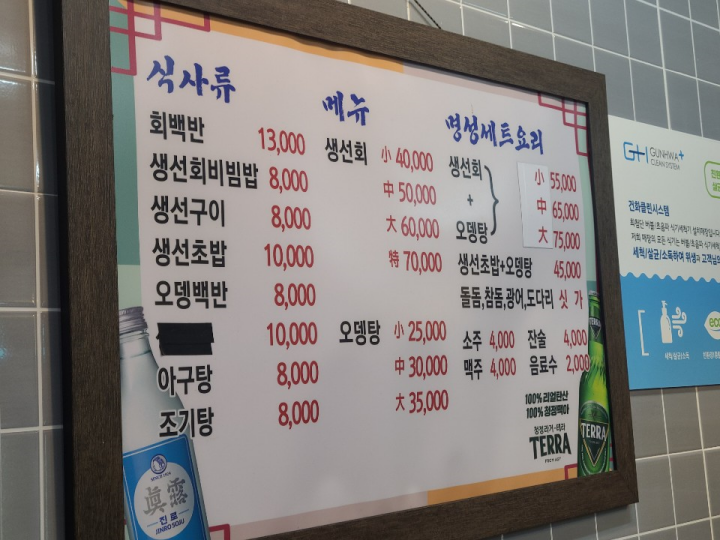 식사류
회백반 13,000
생선회비빔밥 8,000
생선구이 8,000
생선초밥 10,000
오뎅백반 8,000
10,000
아구탕 8,000
조기탕 8,000
메뉴
생선회 小 40,000
中 50,000
大 60,000
特 70,000
오뎅탕 小 25,000
中 30,000
大 35,000
명성세트요리
생선회 + 오뎅탕
小 55,000
中 65,000
大 75,000
생선초밥+오뎅탕 45,000
돌돔,참돔,광어,도다리 싯가
소주 4,000 잔술 4,000
맥주 4,000 음료수 2,000
100% 리얼탄산
100% 청정맥아
청정라거-테라
TERRA
TERRA
TERRA
眞露
진로
JINRO SOJU
GH GUNHWA+
CLEAN SYSTEM
건화클린시스템
세척/살균/소독하여 위생과 고객님의
세척/살균/소독
eco